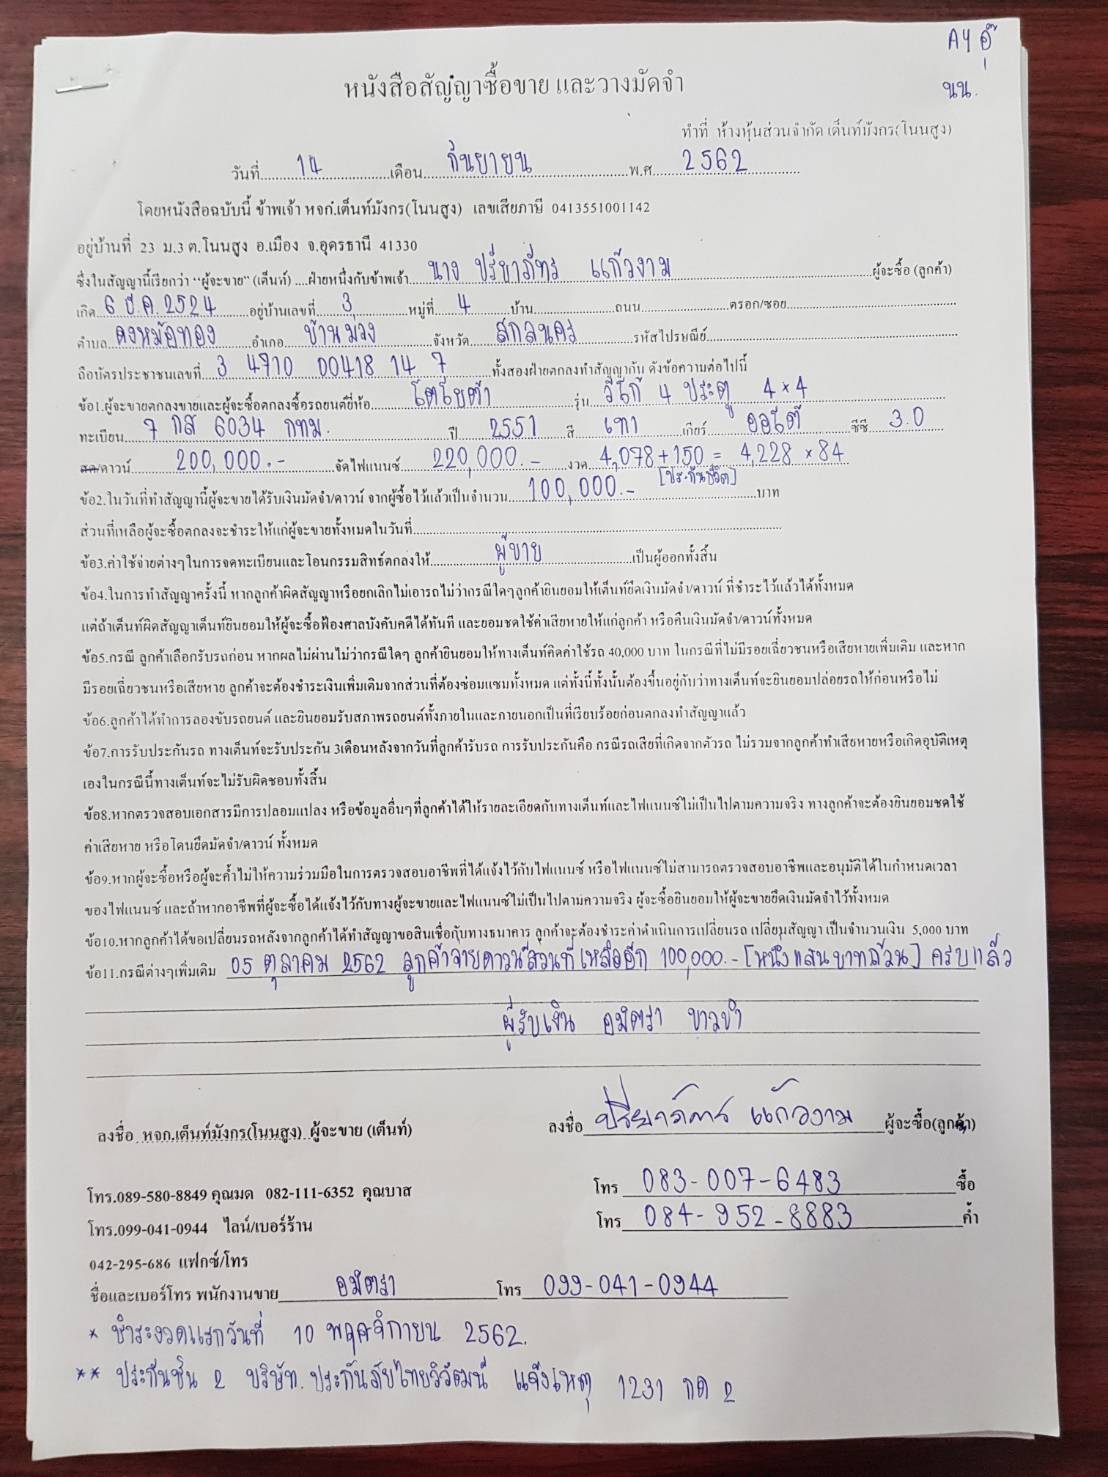 AY อุ๊
นน.
หนังสือสัญญาซื้อขาย และวางมัดจำ
ทำที่ ห้างหุ้นส่วนจำกัด เต็นท์มังกร(โนนสูง)
วันที่ 14 เดือน กันยายน พ.ศ. 2562
โดยหนังสือฉบับนี้ ข้าพเจ้า หจก.เต็นท์มังกร(โนนสูง) เลขเสียภาษี 0413551001142
อยู่บ้านที่ 23 ม.3 ต.โนนสูง อ.เมือง จ.อุดรธานี 41330
ซึ่งในสัญญานี้เรียกว่า "ผู้จะขาย" (เต็นท์) ....ฝ่ายหนึ่งกับข้าพเจ้า นาง ปรียาภัทร แก้วงาม ผู้จะซื้อ (ลูกค้า)
เกิด 6 ธ.ค. 2524 อยู่บ้านเลขที่ 3 หมู่ที่ 4 บ้าน ถนน ตรอก/ซอย
ตำบล ดงหม้อทอง อำเภอ บ้านม่วง จังหวัด สกลนคร รหัสไปรษณีย์
ถือบัตรประชาชนเลขที่ 3 4710 00418 14 7 ทั้งสองฝ่ายตกลงทำสัญญากัน ดังข้อความต่อไปนี้
ข้อ1.ผู้จะขายตกลงขายและผู้จะซื้อตกลงซื้อรถยนต์ยี่ห้อ โตโยต้า รุ่น วีโก้ 4 ประตู 4×4
ทะเบียน 7 กส 6034 กทม. ปี 2551 สี เทา เกียร์ ออโต้ ซีซี 3.0
สด/ดาวน์ 200,000.- จัดไฟแนนซ์ 220,000.- งวด 4,078+150 = 4,228 × 84
[ประกันชีวิต]
ข้อ2.ในวันที่ทำสัญญานี้ผู้จะขายได้รับเงินมัดจำ/ดาวน์ จากผู้ซื้อไว้แล้วเป็นจำนวน 100,000.- บาท
ส่วนที่เหลือผู้จะซื้อตกลงจะชำระให้แก่ผู้จะขายทั้งหมดในวันที่
ข้อ3.ค่าใช้จ่ายต่างๆในการจดทะเบียนและโอนกรรมสิทธ์ตกลงให้ ผู้ขาย เป็นผู้ออกทั้งสิ้น
ข้อ4.ในการทำสัญญาครั้งนี้ หากลูกค้าผิดสัญญาหรือยกเลิกไม่เอารถ ไม่ว่ากรณีใดๆลูกค้ายินยอมให้เต็นท์ยึดเงินมัดจำ/ดาวน์ ที่ชำระไว้แล้วได้ทั้งหมด
แต่ถ้าเต็นท์ผิดสัญญาเต็นท์ยินยอมให้ผู้จะซื้อฟ้องศาลบังคับคดีได้ทันที และยอมชดใช้ค่าเสียหายให้แก่ลูกค้า หรือคืนเงินมัดจำ/ดาวน์ทั้งหมด
ข้อ5.กรณี ลูกค้าเลือกรับรถก่อน หากผลไม่ผ่านไม่ว่ากรณีใดๆ ลูกค้ายินยอมให้ทางเต็นท์คิดค่าใช้รถ 40,000 บาท ในกรณีที่ไม่มีรอยเฉี่ยวชนหรือเสียหายเพิ่มเติม และหาก
มีรอยเฉี่ยวชนหรือเสียหาย ลูกค้าจะต้องชำระเงินเพิ่มเติมจากส่วนที่ต้องซ่อมแซมทั้งหมด แต่ทั้งนี้ทั้งนั้นต้องขึ้นอยู่กับว่าทางเต็นท์จะยินยอมปล่อยรถให้ก่อนหรือไม่
ข้อ6.ลูกค้าได้ทำการลองขับรถยนต์ และยินยอมรับสภาพรถยนต์ทั้งภายในและภายนอกเป็นที่เรียบร้อยก่อนตกลงทำสัญญาแล้ว
ข้อ7.การรับประกันรถ ทางเต็นท์จะรับประกัน 3เดือนหลังจากวันที่ลูกค้ารับรถ การรับประกันคือ กรณีรถเสียที่เกิดจากตัวรถ ไม่รวมจากลูกค้าทำเสียหายหรือเกิดอุบัติเหตุ
เองในกรณีนี้ทางเต็นท์จะไม่รับผิดชอบทั้งสิ้น
ข้อ8.หากตรวจสอบเอกสารมีการปลอมแปลง หรือข้อมูลอื่นๆที่ลูกค้าได้ให้รายละเอียดกับทางเต็นท์และไฟแนนซ์ไม่เป็นไปตามความจริง ทางลูกค้าจะต้องยินยอมชดใช้
ค่าเสียหาย หรือโดนยึดมัดจำ/ดาวน์ ทั้งหมด
ข้อ9.หากผู้จะซื้อหรือผู้จะค้ำไม่ให้ความร่วมมือในการตรวจสอบอาชีพที่ได้แจ้งไว้กับไฟแนนซ์ หรือไฟแนนซ์ไม่สามารถตรวจสอบอาชีพและอนุมัติได้ในกำหนดเวลา
ของไฟแนนซ์ และถ้าหากอาชีพที่ผู้จะซื้อได้แจ้งไว้กับทางผู้จะขายและไฟแนนซ์ไม่เป็นไปตามความจริง ผู้จะซื้อยินยอมให้ผู้จะขายยึดเงินมัดจำไว้ทั้งหมด
ข้อ10.หากลูกค้าได้ขอเปลี่ยนรถหลังจากลูกค้าได้ทำสัญญาขอสินเชื่อกับทางธนาคาร ลูกค้าจะต้องชำระค่าดำเนินการเปลี่ยนรถ เปลี่ยนสัญญา เป็นจำนวนเงิน 5,000 บาท
ข้อ11.กรณีต่างๆเพิ่มเติม 05 ตุลาคม 2562 ลูกค้าจ่ายดาวน์ส่วนที่เหลืออีก 100,000.- [หนึ่งแสนบาทถ้วน] ครบแล้ว
ผู้รับเงิน อมิตรา ขาวขำ
ลงชื่อ หจก.เต็นท์มังกร(โนนสูง) ผู้จะขาย (เต็นท์) ลงชื่อ ปรียาภัทร แก้วงาม ผู้จะซื้อ(ลูกค้า)
โทร.089-580-8849 คุณมด 082-111-6352 คุณบาส โทร 083-007-6483 ซื้อ
โทร.099-041-0944 ไลน์/เบอร์ร้าน โทร 084-952-8883 ค้ำ
042-295-686 แฟกซ์/โทร
ชื่อและเบอร์โทร พนักงานขาย อมิตรา โทร 099-041-0944
* ชำระงวดแรกวันที่ 10 พฤศจิกายน 2562.
** ประกันชั้น 2 บริษัท. ประกันภัยไทยวิวัฒน์ แจ้งเหตุ 1231 กด 2